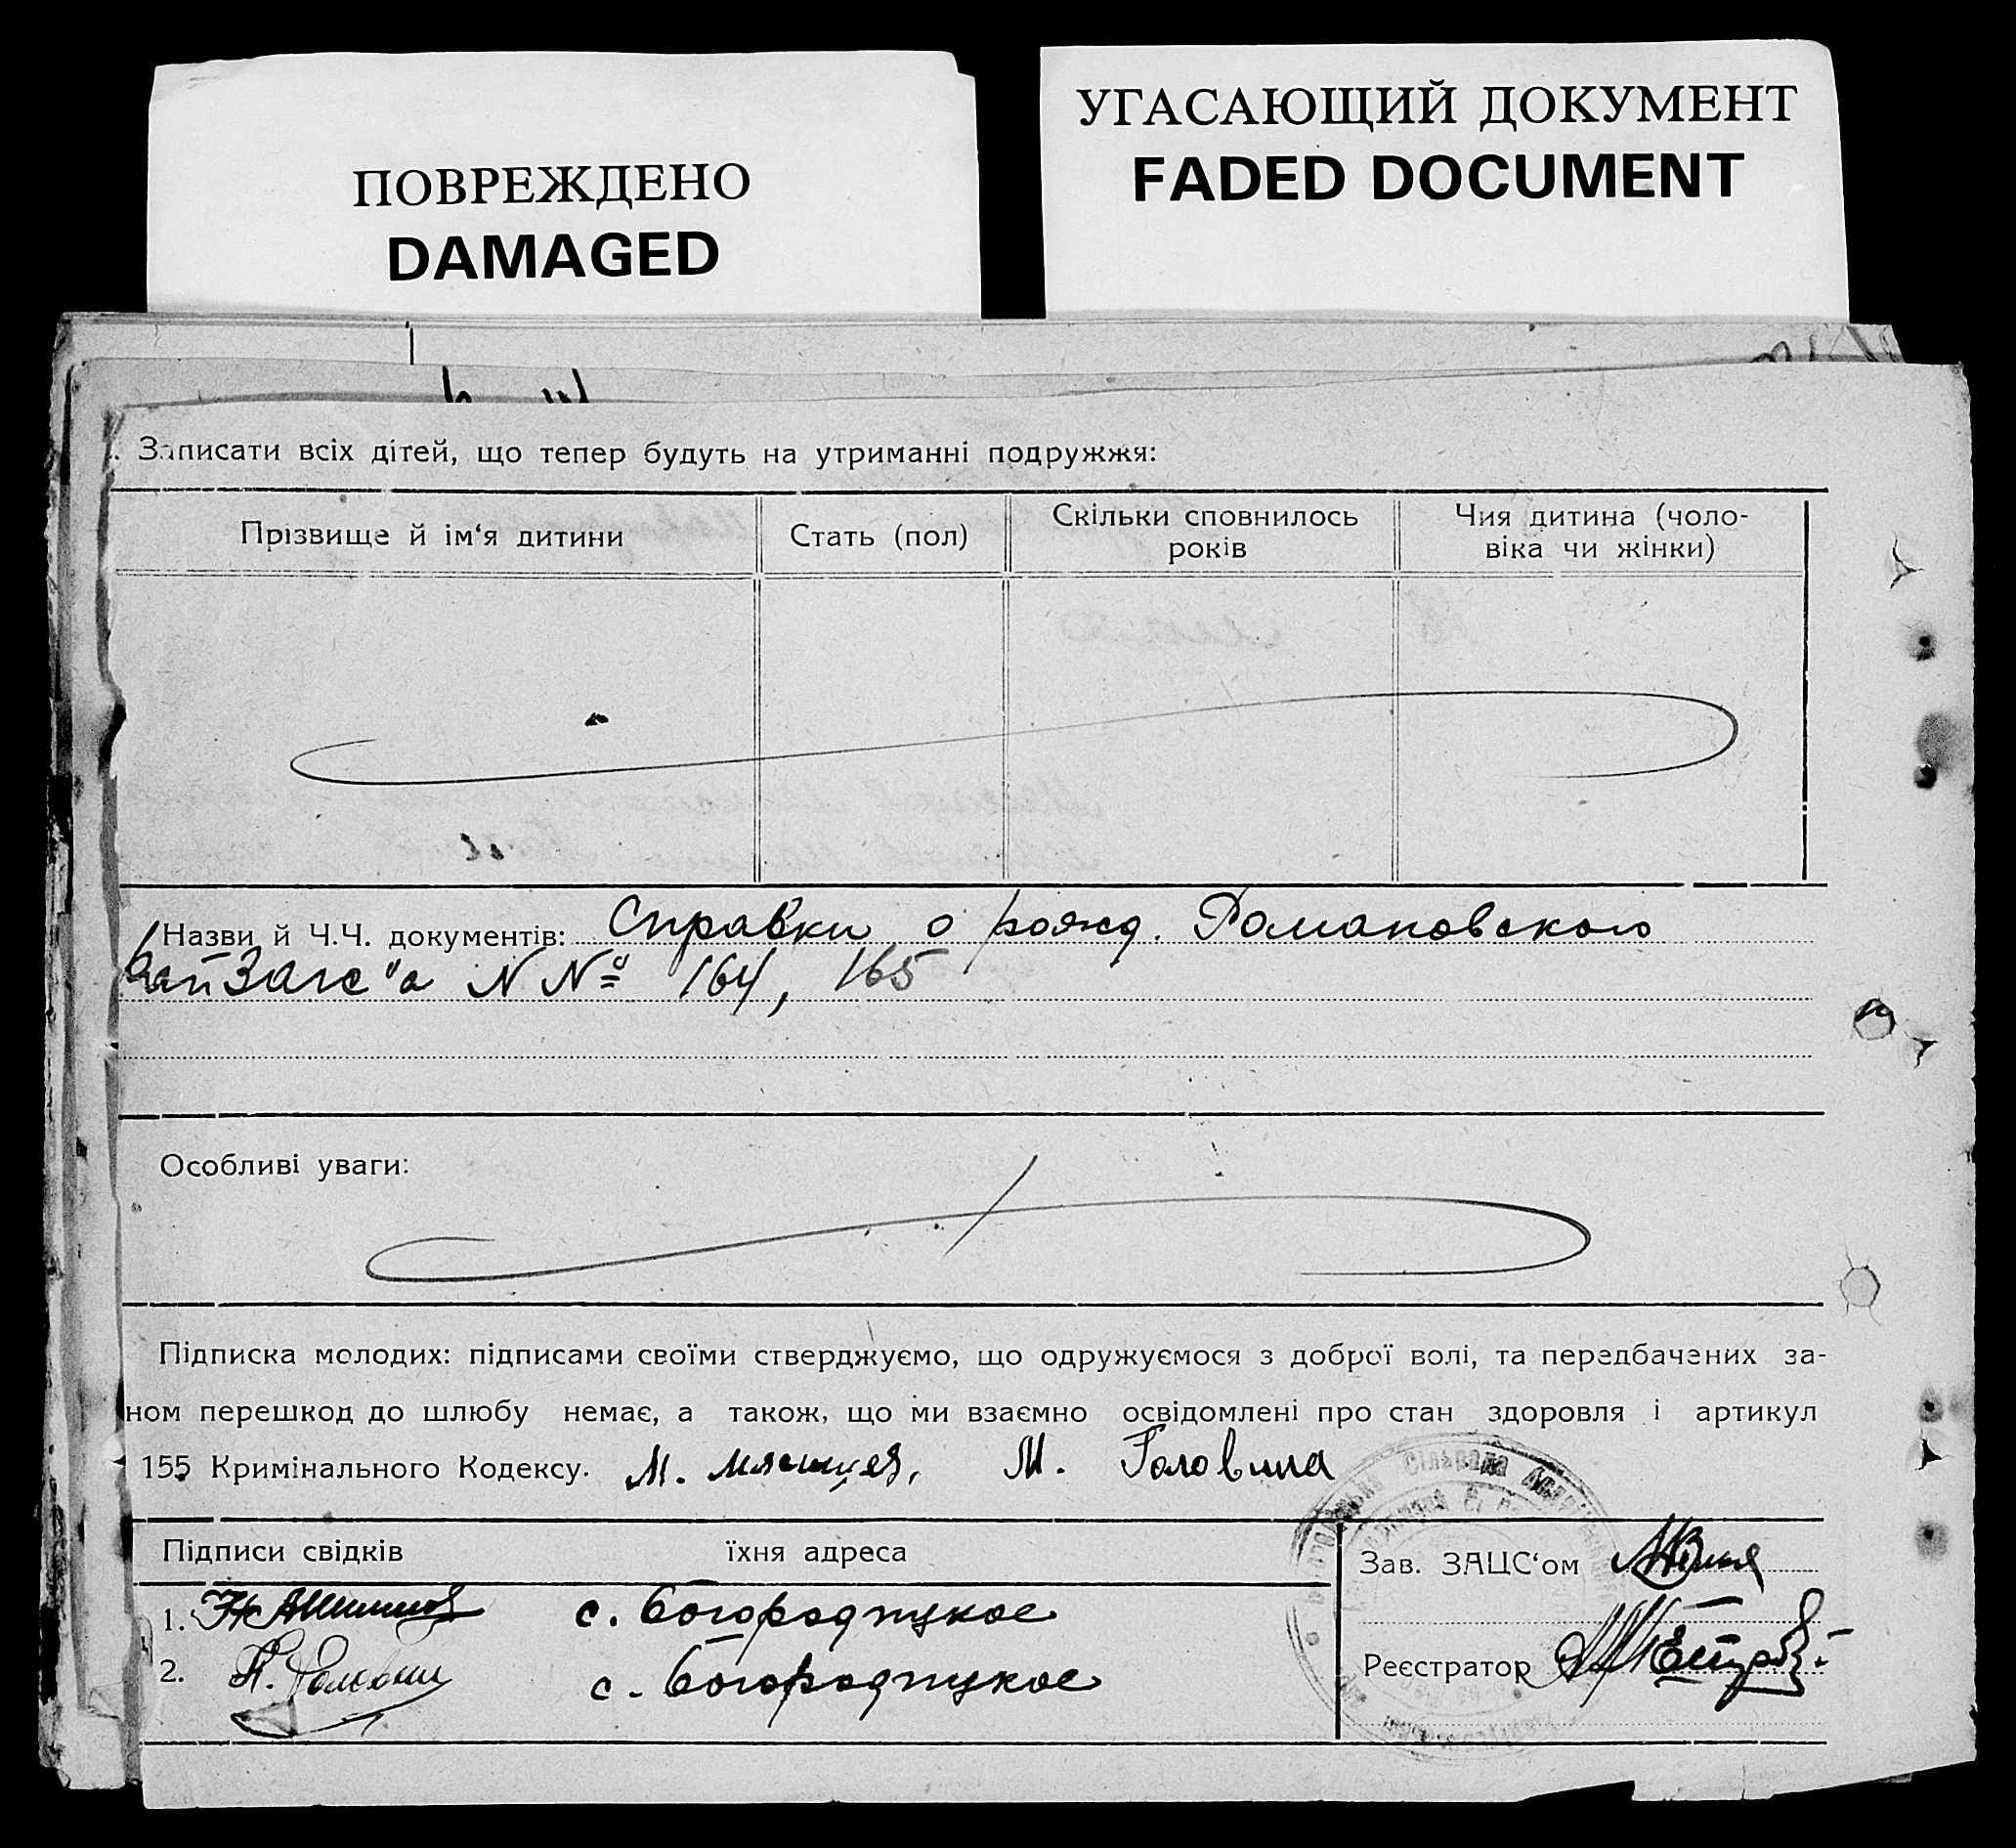 ПОВРЕЖДЕНО
DAMAGED
УГАСАЮЩИЙ ДОКУМЕНТ
FADED DOCUMENT
Записати всіх дітей, що тепер будуть на утриманні подружжя:
Прізвище й ім‘я дитини
Стать (пол)
Скільки сповнилось
років
Чия дитина (чоло-
віка чи жінки)
Назви й Ч.Ч. документів: Справки о рожд. Романовского
РайЗагс"а N Nº 164, 165
Особливі уваги:
Підписка молодих: підписами своїми стверджуємо, що одружуємося з доброї волі, та передбачених за-
ном перешкод до шлюбу немає, а також, що ми взаємно освідомлені про стан здоровля і артикул
155 Кримінального Кодексу. М. М. Головина
Підписи свідків
їхня адреса
Зав. ЗАЦС‘ом
1. с. Богородицкое
2. с. Богородицкое
Реєстратор
Сільрада